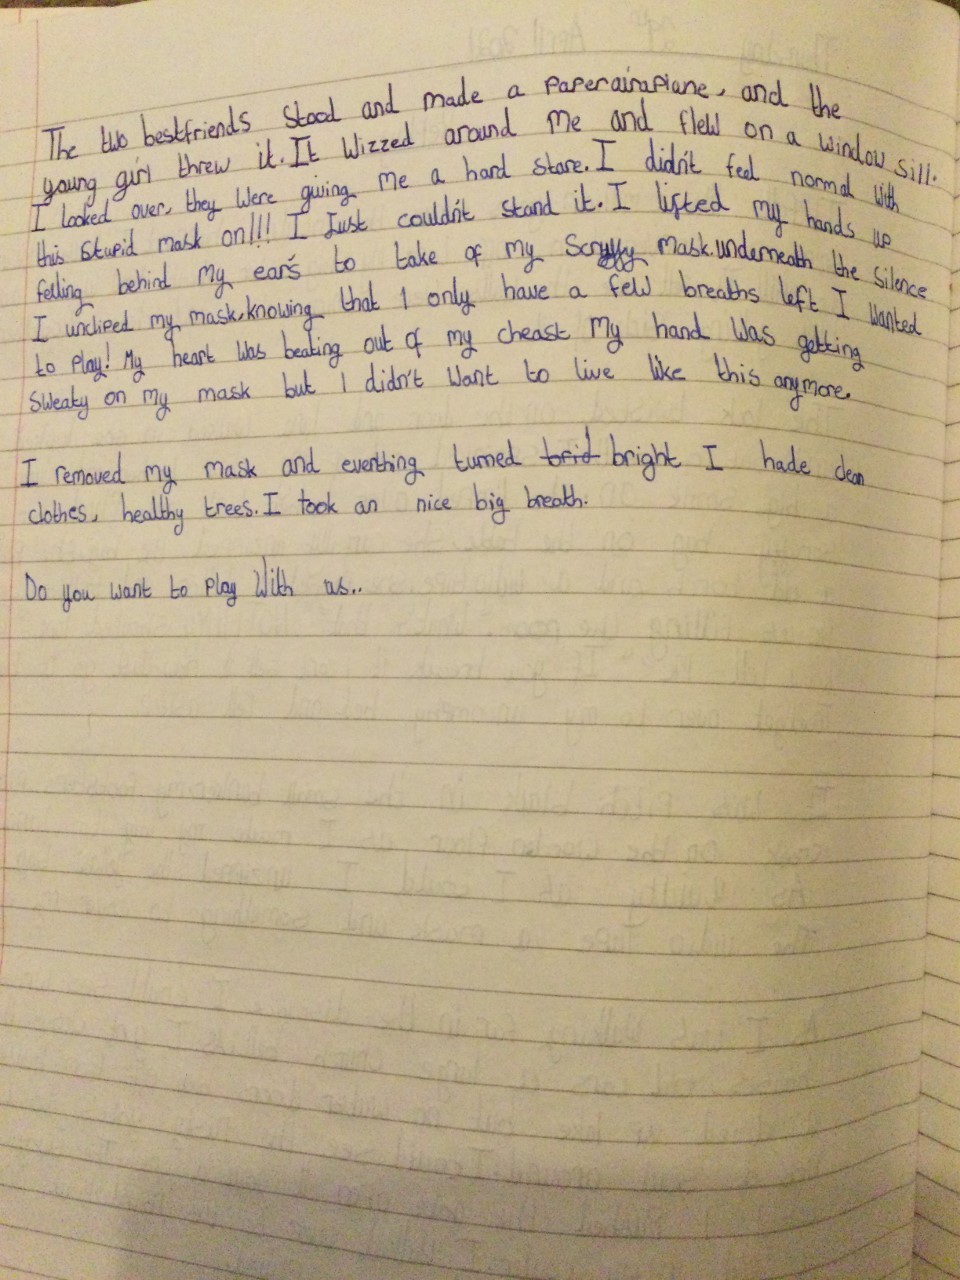 The two bestfriends stood and made a paperairaplane, and the
young girl threw it. It wizzed around me and flew on a window sill.
I looked over, they were giving me a hard stare. I didn't feel normal with
this stupid mask on!!! I Just couldn't stand it. I lifted my hands up
felling behind my ear's to take of my scruffy mask. underneath the silence
I uncliped my mask, knowing that I only have a few breaths left I wanted
to play! My heart was beating out of my cheast My hand was getting
sweaty on my mask but I didn't want to live like this anymore.
I removed my mask and everthing turned brid bright I hade clean
clothes, healthy trees. I took an nice big breath.
Do you want to play with us..